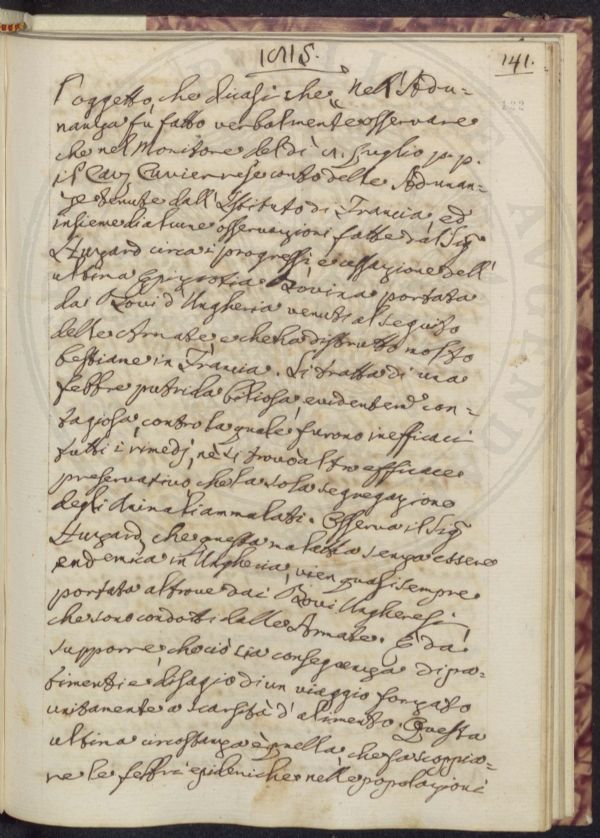 1815.
141.
122
l'oggetto, che dicasi che nell'Adu-
nanza fù fatto verbalmente osservare
che nel Monitore del dì 21. Luglio p.p.
il Cav Cuvier rese conto delle Adunan-
ze tenute dall'Istituto di Francia, ed
insieme di alcune osservazioni fatte dal Sig
Huzard circa i progressi e cessazione dell'
ultima Epizootia Bovina portata
da Bovi d'Ungheria venuti al seguito
delle Armate e che ha distrutto molto
bestiame in Francia. Si tratta di una
febbre putrida biliosa evidentem con-
tagiosa, contro la quale furono inefficaci
tutti i rimedj, nè si trovò altro efficace
preservativo che la sola segregazione
degli Animali ammalati. Osserva il Sig
Huzard, che questa malattia senza essere
endemica in Ungheria, vien quasi sempre
portata altrove dai Bovi Ungheresi,
che sono condotti dalle Armate. È da
supporre che ciò sia conseguenza di pa-
timenti e disagio di un viaggio forzato
unitamente a scarsità d'alimento. Questa
ultima circostanza è quella che fa scoppia-
re le febbri epidemiche nelle popolazioni